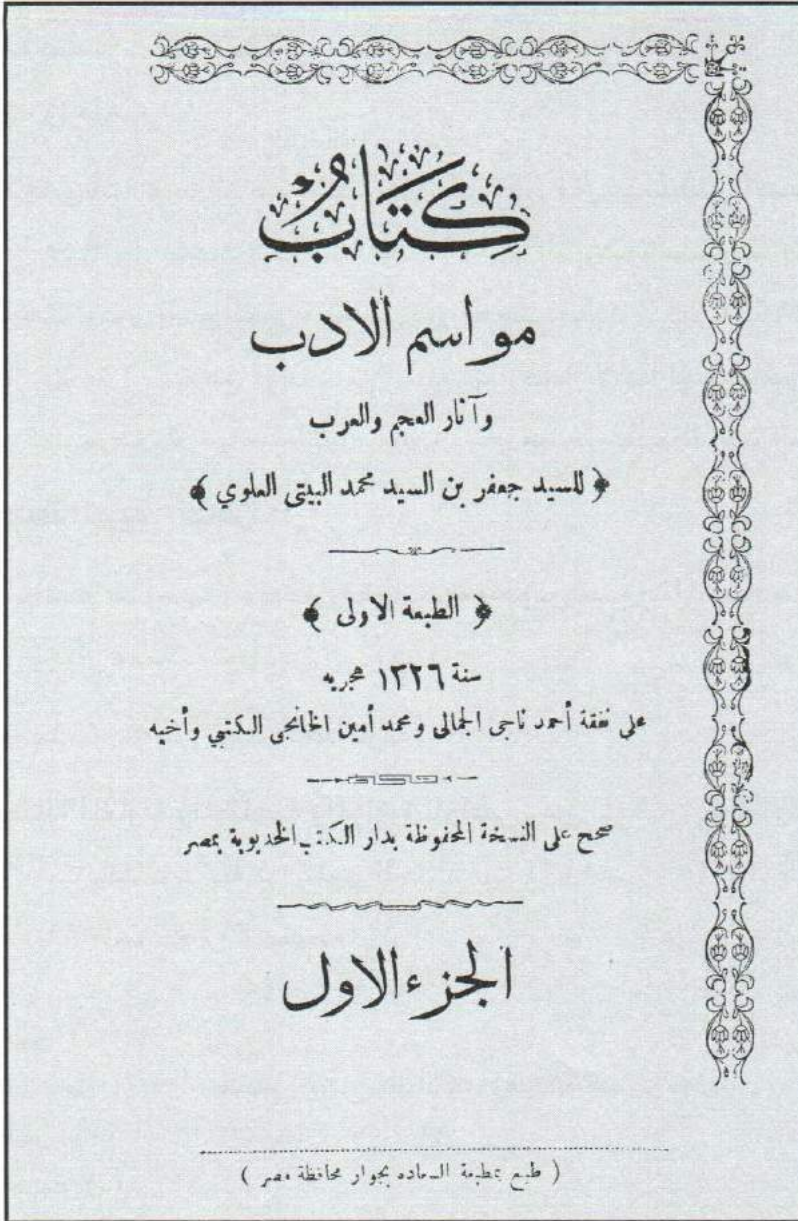 كِتَابُ
مواسم الادب
وآثار العجم والعرب
﴿ للسيد جعفر بن السيد محمد البيتى العلوي ﴾
﴿ الطبعة الاولى ﴾
سنة ١٣٢٦ هجريه
على نفقة أحمد ناجى الجمالى ومحمد أمين الخانجى الكتبي وأخيه
صحح على النسخة المحفوظة بدار الكتب الخديوية بمصر
الجزء الاول
( طبع بمطبعة السعاده بجوار محافظة مصر )